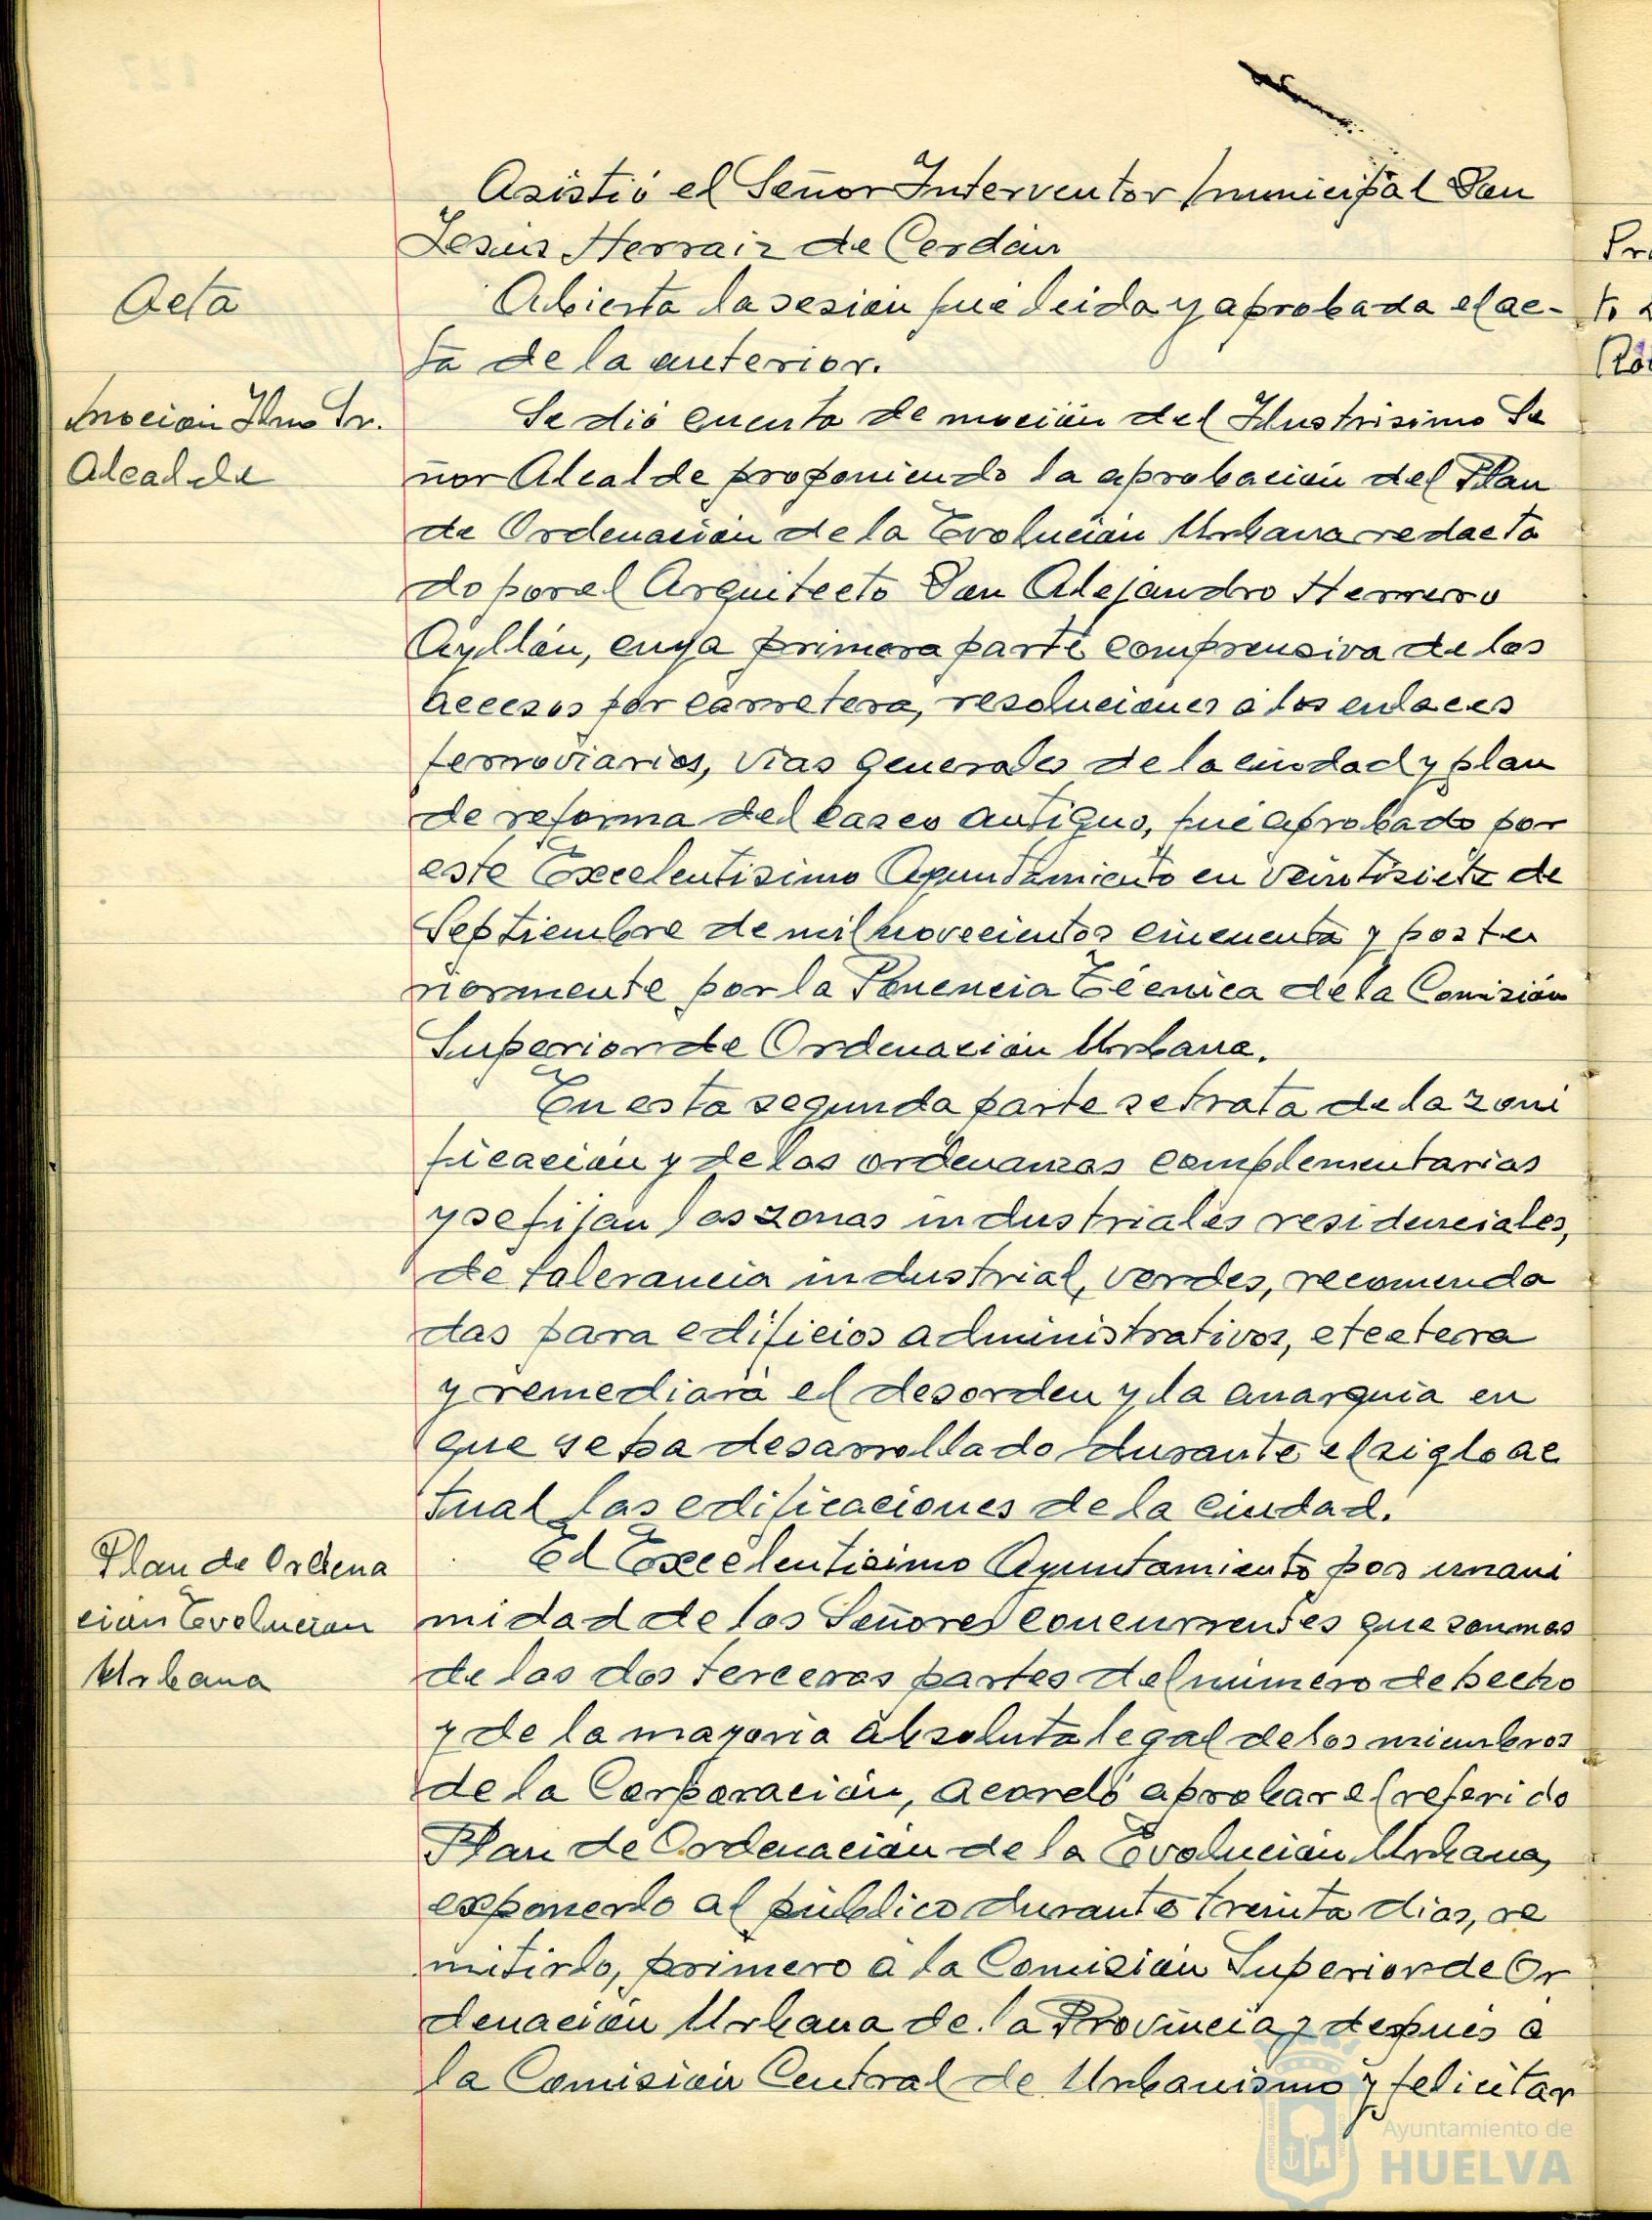 Asistió el Señor Interventor municipal Don
Jesús Herraiz de Cerdán
Acta
Abierta la sesión fué leida y aprobada el ac-
ta de la anterior.
moción Ilmo Sr.
Alcalde
Se dió cuenta de moción del Ilustrisimo Se
ñor Alcalde proponiendo la aprobación del Plan
de Ordenación de la Evolución Urbana redacta
do por el Arquitecto Don Alejandro Herrero
Ayllón, cuya primera parte comprensiva de los
accesos por carretera, resoluciones a los enlaces
ferroviarios, vias generales de la ciudad y plan
de reforma del casco antiguo, fué aprobado por
este Excelentisimo Ayuntamiento en veintisiete de
Septiembre de mil novecientos cincuenta y poste
riormente por la Ponencia Técnica de la Comisión
Superior de Ordenación Urbana.
En esta segunda parte se trata de la zoni
ficación y de las ordenanzas complementarias
y se fijan las zonas industriales residenciales,
de tolerancia industrial, verdes, recomenda
das para edificios administrativos, etcetera
y remediará el desorden y la anarquia en
que se ha desarrollado durante el siglo ac
tual las edificaciones de la ciudad.
Plan de Ordena
ción Evolución
Urbana
El Excelentisimo Ayuntamiento por unani
midad de los Señores concurrentes que son mas
de las dos terceras partes del número de hecho
y de la mayoria absoluta legal de los miembros
de la Corporación, acordó aprobar el referido
Plan de Ordenación de la Evolución Urbana,
exponerlo al público durante treinta dias, re
mitirlo, primero a la Comisión Superior de Or
denación Urbana de la Provincia y después a
la Comisión Central de Urbanismo y felicitar
Ayuntamiento de
HUELVA